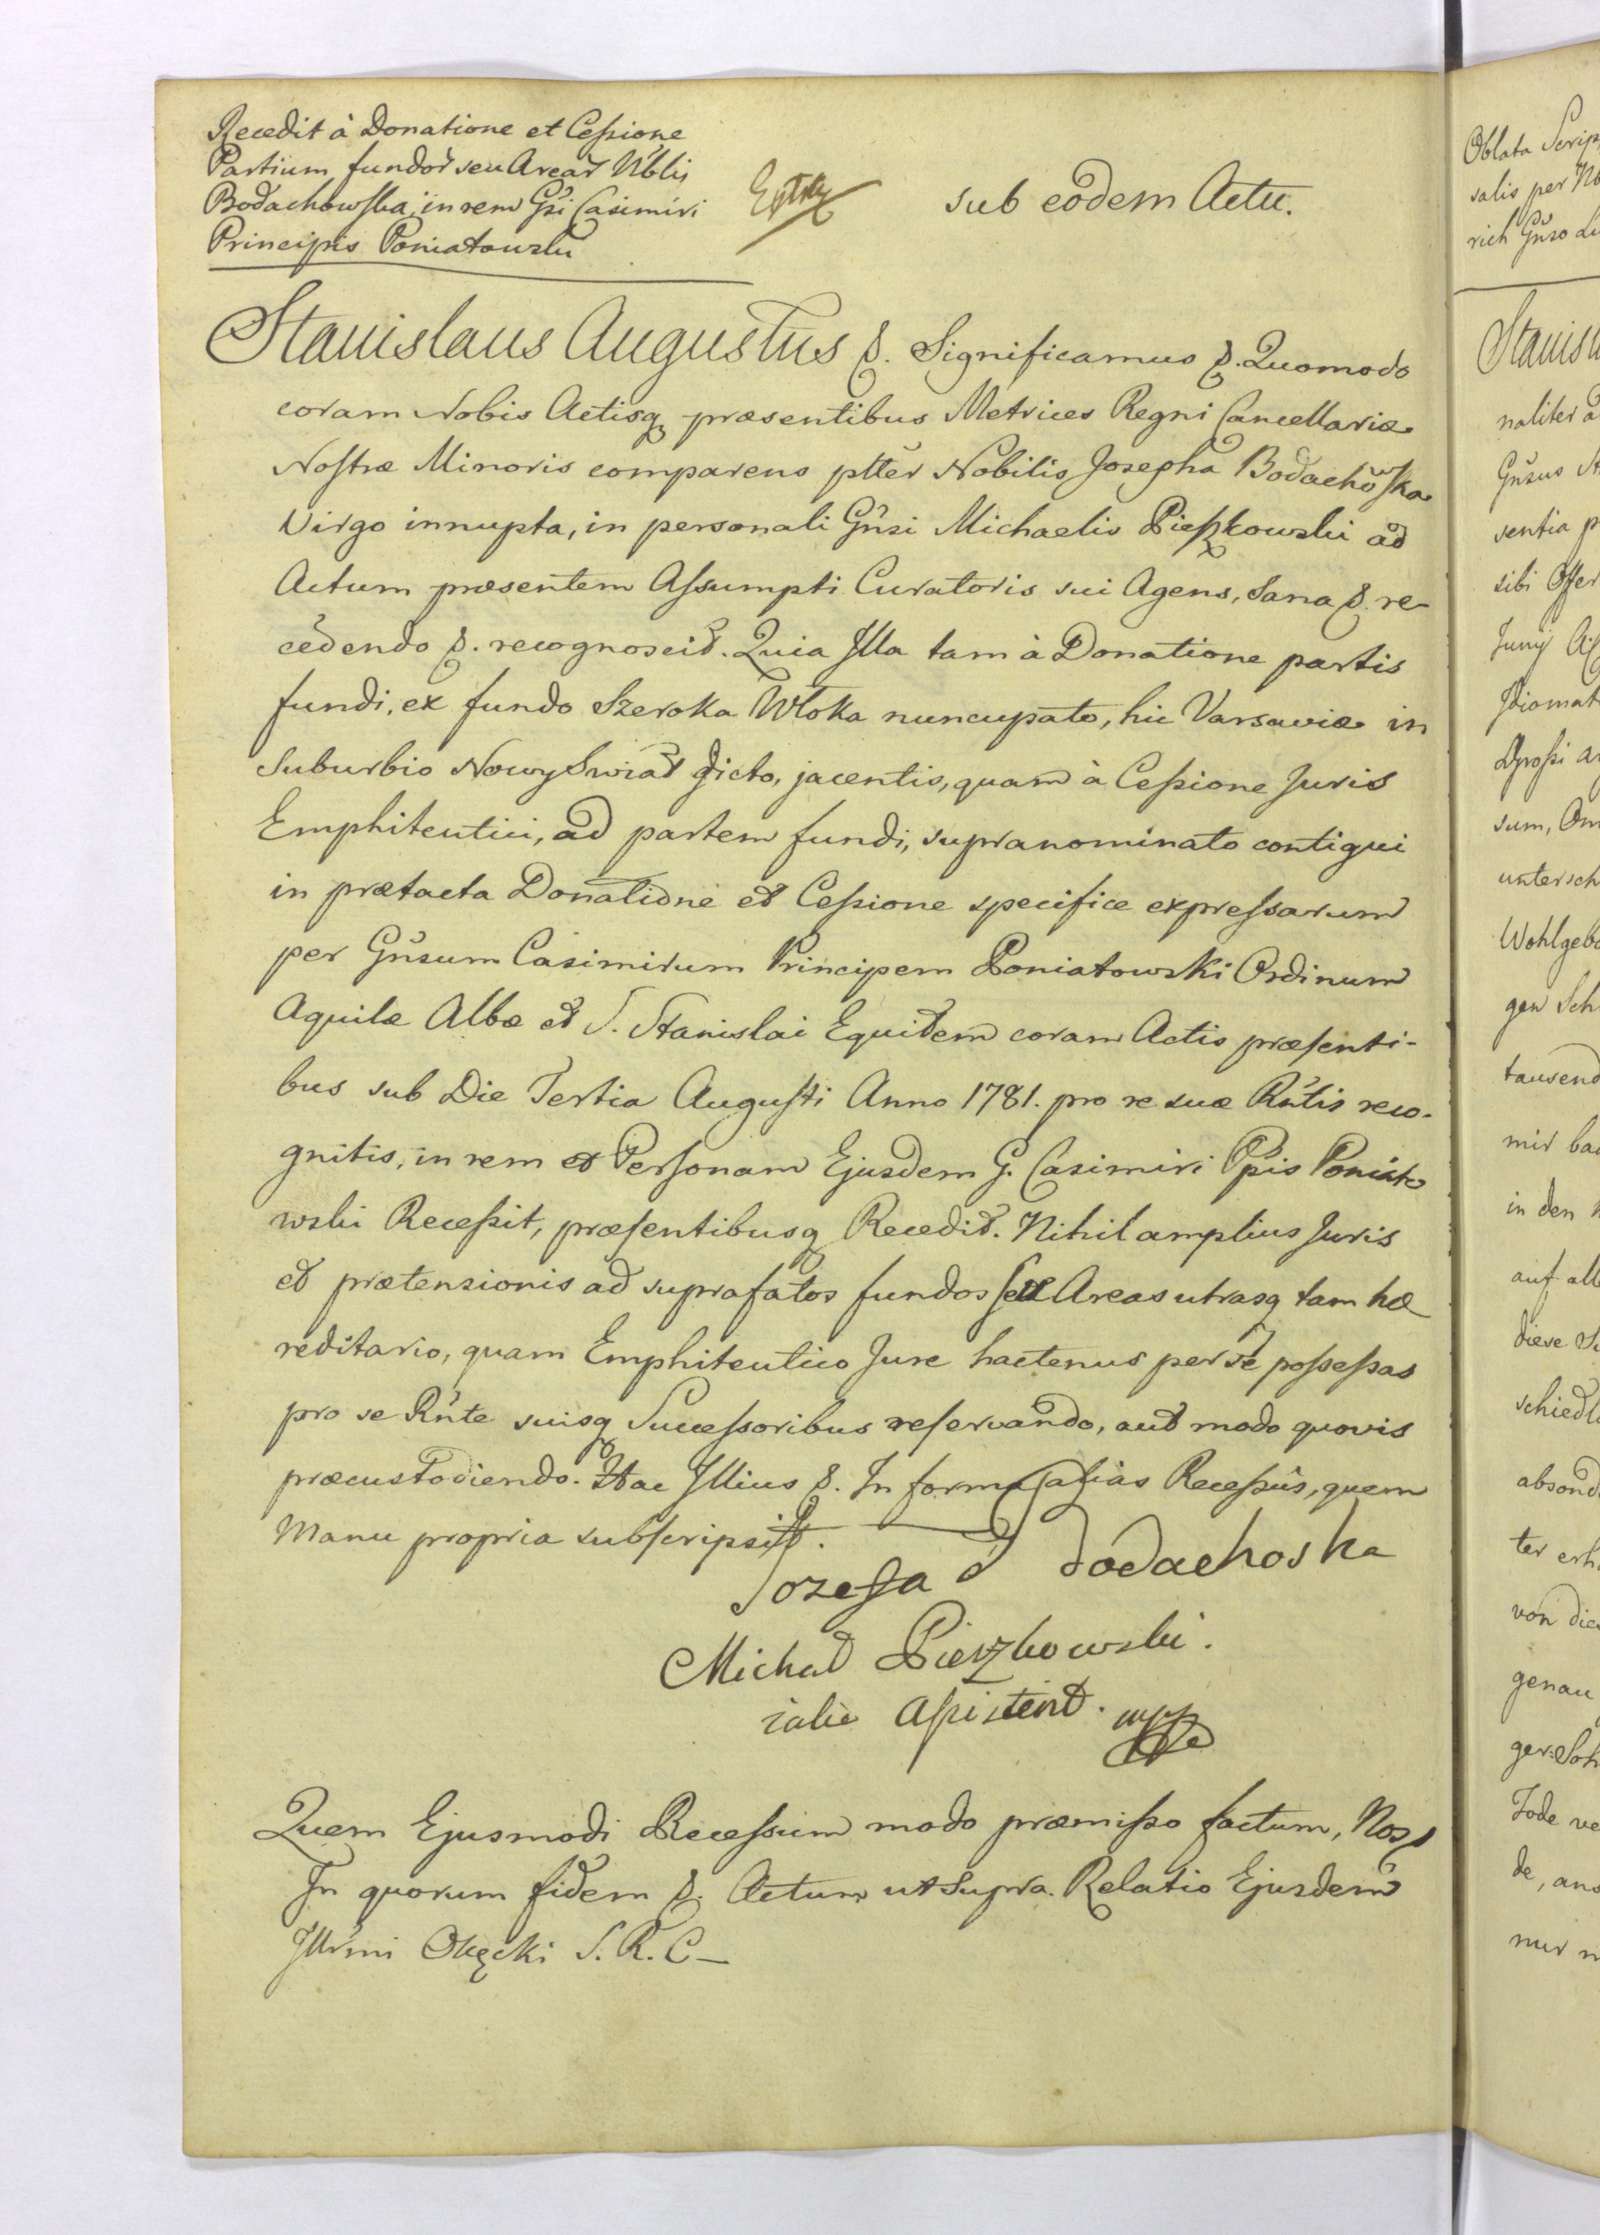 Recedit à Donatione et Cessione
Partium fundor seu Arear Nblis
Bodachowska, in rem Gsi Casimiri
Principis Poniatowski
sub eodem Actu.
Stanislaus Augustus &. Significamus &. Quomodo
coram Nobis Actisq præsentibus Metrices Regni Cancellariæ
Nostræ Minoris comparens ptter Nobilis Josepha Bodachowska
Virgo innupta, in personali Gnsi Michaelis Pieszkowski ad
Actum præsentem Assumpti Curatoris sui Agens, Sana &. re-
cedendo &. recognoscit. Quia Illa tam à Donatione partis
fundi, ex fundo Szeroka Włoka nuncupato, hic Varsaviæ in
Suburbio Nowy Swiat dicto, jacentis, quam à Cessione Juris
Emphiteutici, ad partem fundi, supranominato contigui
in prætacta Donatione et Cessione specifice expressarum
per Gnsum Casimirum Principem Poniatowski Ordinum
Aquilæ Albæ et S. Stanislai Equitem coram Actis præsenti-
bus sub Die Tertia Augusti Anno 1781. pro re suæ Rntis reco-
gnitis, in rem et Personam Ejusdem G. Casimiri Ppis Poniato
wski Recessit, præsentibusq Recedit. Nihil amplius Juris
et prætensionis ad suprafatos fundos seu Areas utrasq tam hæ
reditario, quam Emphiteutico Jure hactenus per se possessas
pro se Rnte suisq Successoribus reservando, aut modo quovis
præcustodiendo. Hac Illius &. In forma alias Recessus, quem
Manu propria subscripsit.
Jozefa Bodachoska
Michał Pieszkowski.
iako Assistent. mpp
Quem Ejusmodi Recessum modo præmisso factum, Nos &
In quorum fidem &. Actum ut Supra. Relatio Ejusdem
Illrmi Okęcki S. R. C.
Oblata
salis per
rich Gnso
naliter
Gnsus
sentia
sibi
Juny
sum,
Wohlgebo
gen
tausend
mir
in den
auf
diese
absond
ter
von
genau
Tode
de,
nur